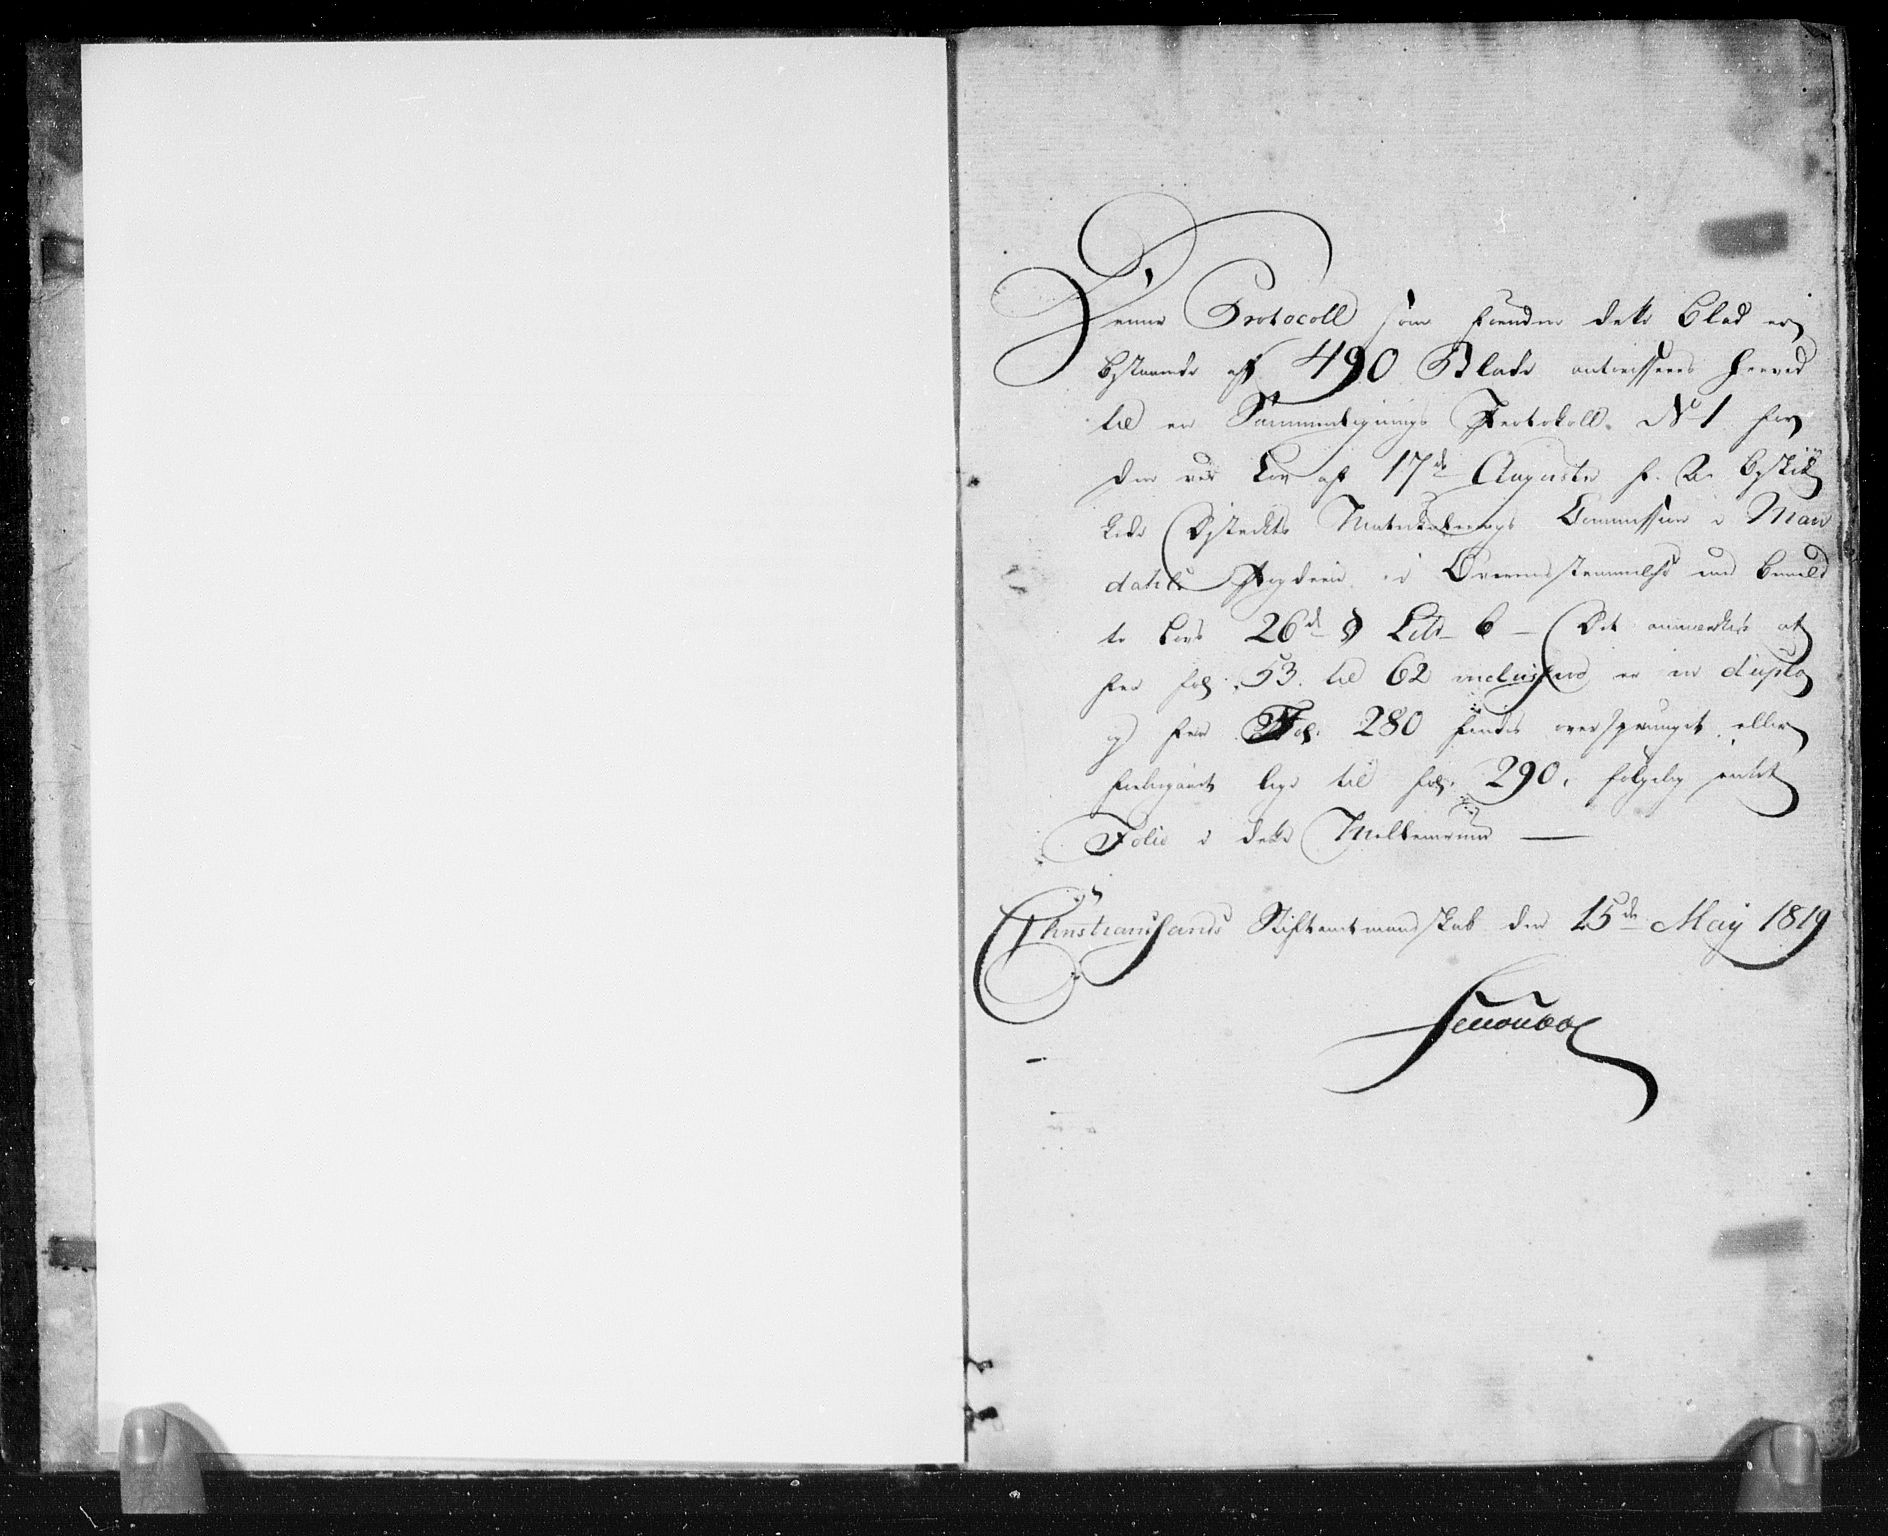 Denne Protocoll som foruden dette Blad er
bestaaende af 490 Blade autoriseres herved
til en Sammenlignings Protokoll No 1 for
den ved Lov af 17de Augusti f. A. beskik
kede Districts Matriculerings Commission i Man
dahls Fogderie i Overensstemmelse med bemeld
te Lovs 26de § Litr b – Det anmærkes at
her fol: 53. til 62 inclusive er in duplo
og her Fol. 280 findes oversprunget eller
forbigaaet lige til fol. 290, følgelig intet
Folio i dette Mellemrum —
Christiansands Stiftamtmandskab den 15de May 1819